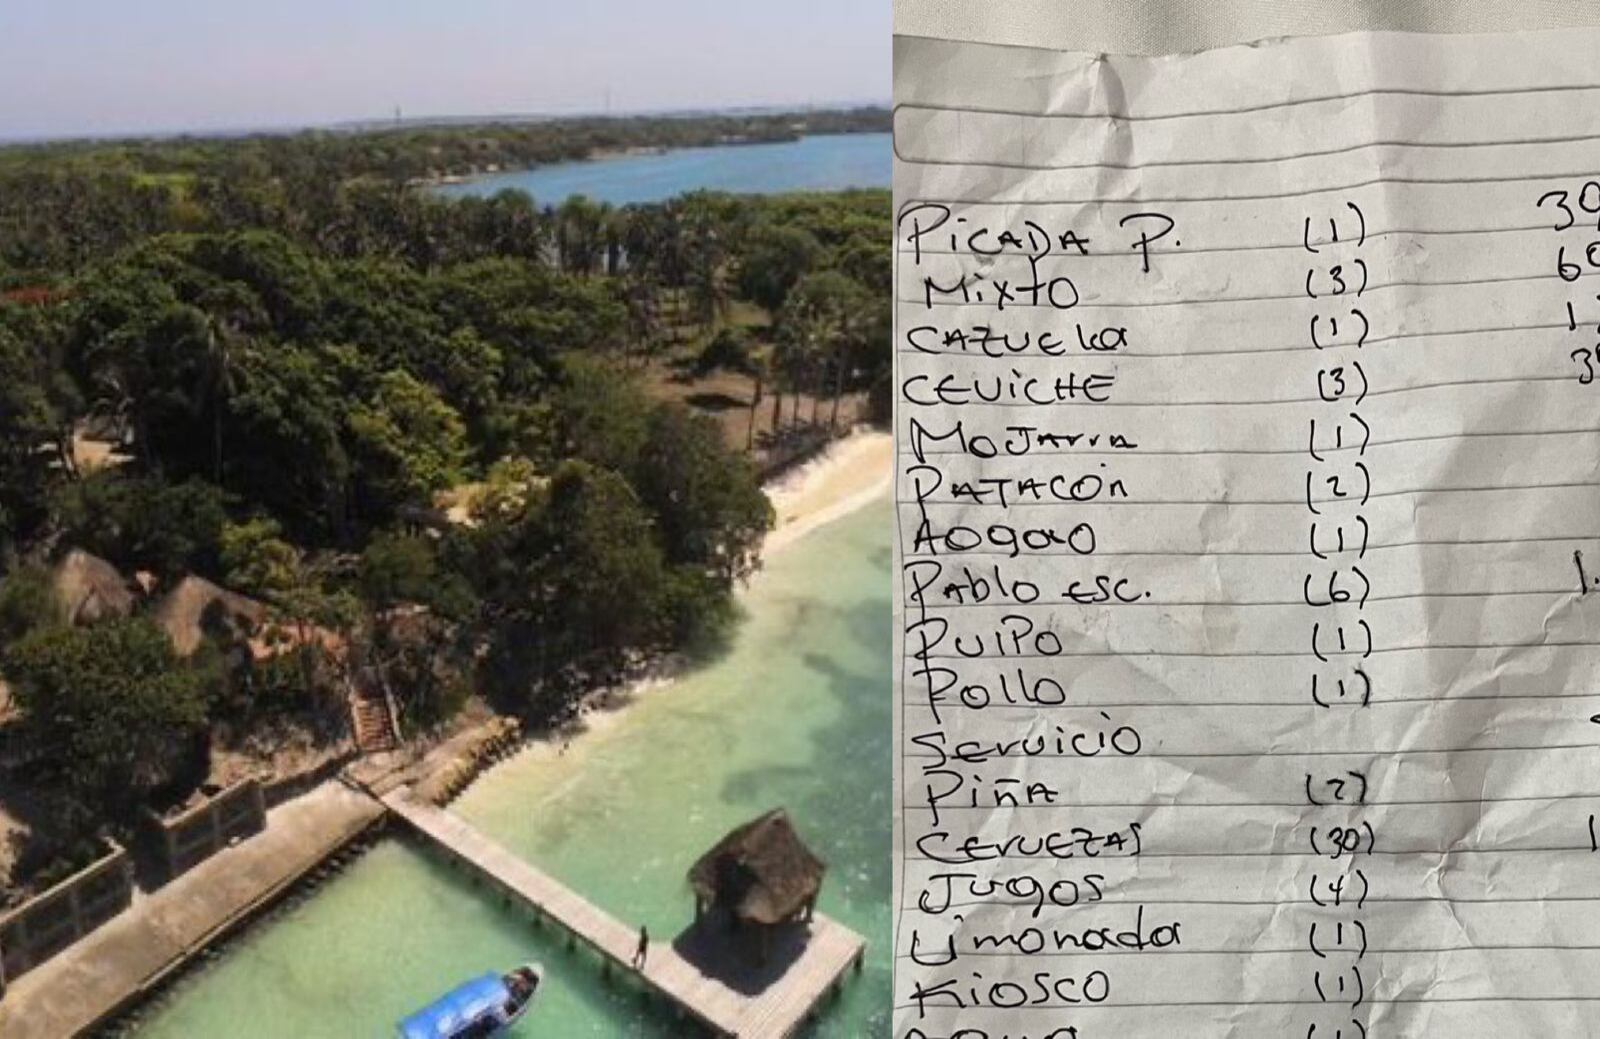 PICADA P. (1) 39
Mixto (3) 60
CAZUELA (1) 1
CEVICHE (3) 3
MOJArrA (1)
PATACÓn (2)
AOgao (1)
PAblo esc. (6) 1.
PUlPO (1)
Pollo (1)
Servicio
PiñA (2)
CErVEZAS (30) 1
JUgOS (4)
Limonada (1)
KiOSCO (1)